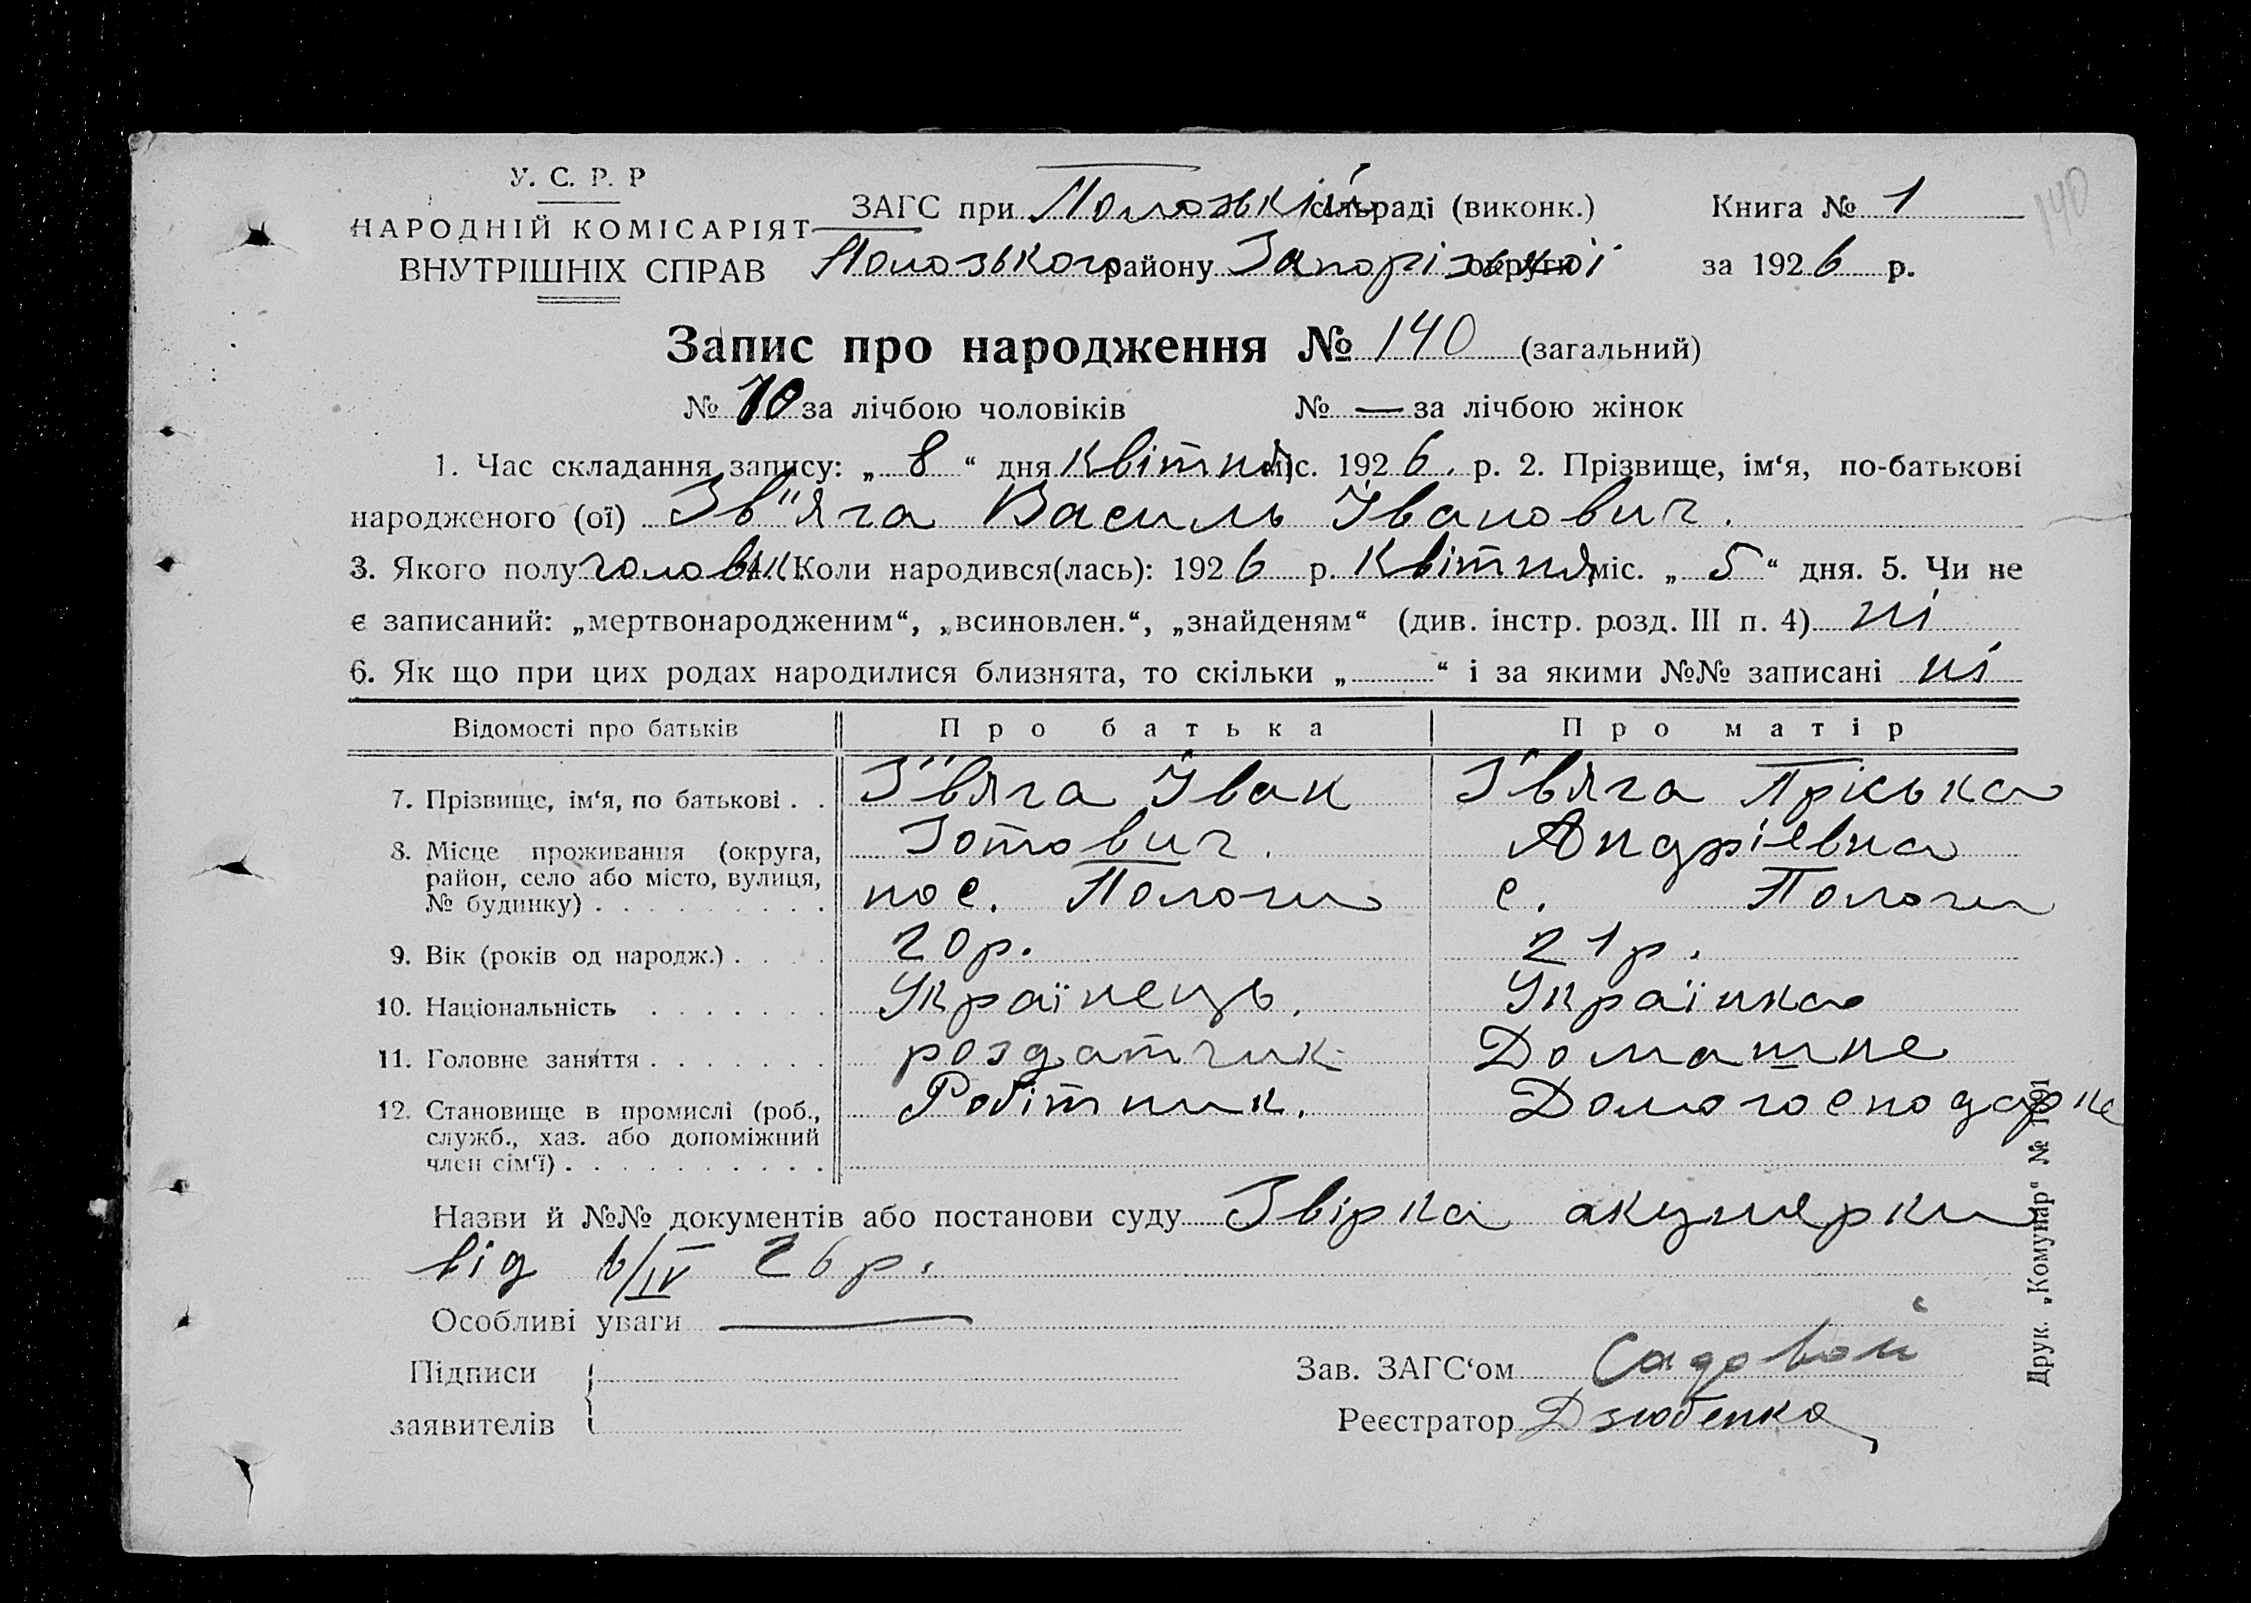 140
У. С. Р. Р
НАРОДНІЙ КОМІСАРІЯТ
ВНУТРІШНІХ СПРАВ
ЗАГС при Пологській сільраді (виконк.) Книга № 1
Пологського району Запорізької округи за 1926 р.
Запис про народження № 140 (загальний)
№ 70 за лічбою чоловіків № — за лічбою жінок
1. Час складання запису: „ 8 “ дня Квітня міс. 1926 р. 2. Прізвище, ім‘я, по-батькові
народженого (ої) Зв"яга Василь Іванович.
3. Якого полу чоловік 4. Коли народився(лась): 1926 р. Квітня міс. „ 5 “ дня. 5. Чи не
є записаний: „мертвонародженим“, „всиновлен.“, „знайденям“ (див. інстр. розд. III п. 4) ні
6. Як що при цих родах народилися близнята, то скільки „ “ і за якими №№ записані ні
Відомості про батьків Про батька Про матір
7. Прізвище, ім‘я, по батькові . . З"вяга Іван З'вяга Пріська
Зотович. Андріевна
8. Місце проживання (округа,
район, село або місто, вулиця,
№ будинку) . пос. Пологи с. Пологи
9. Вік (років од народж.) . 20 р. 21 р.
10. Національність Українець. Українка
11. Головне заняття . роздатчик Домашне
12. Становище в промислі (роб.,
служб., хаз. або допоміжний
член сім‘ї) . Робітник. Домогосподарке
Назви й №№ документів або постанови суду Звірка акушерки
від 6/IV 26 р.
Особливі уваги —
Підписи
заявителів
Зав. ЗАГС‘ом Садовой
Реєстратор Дзюбенко
Друк. „Комунар“ № 1691